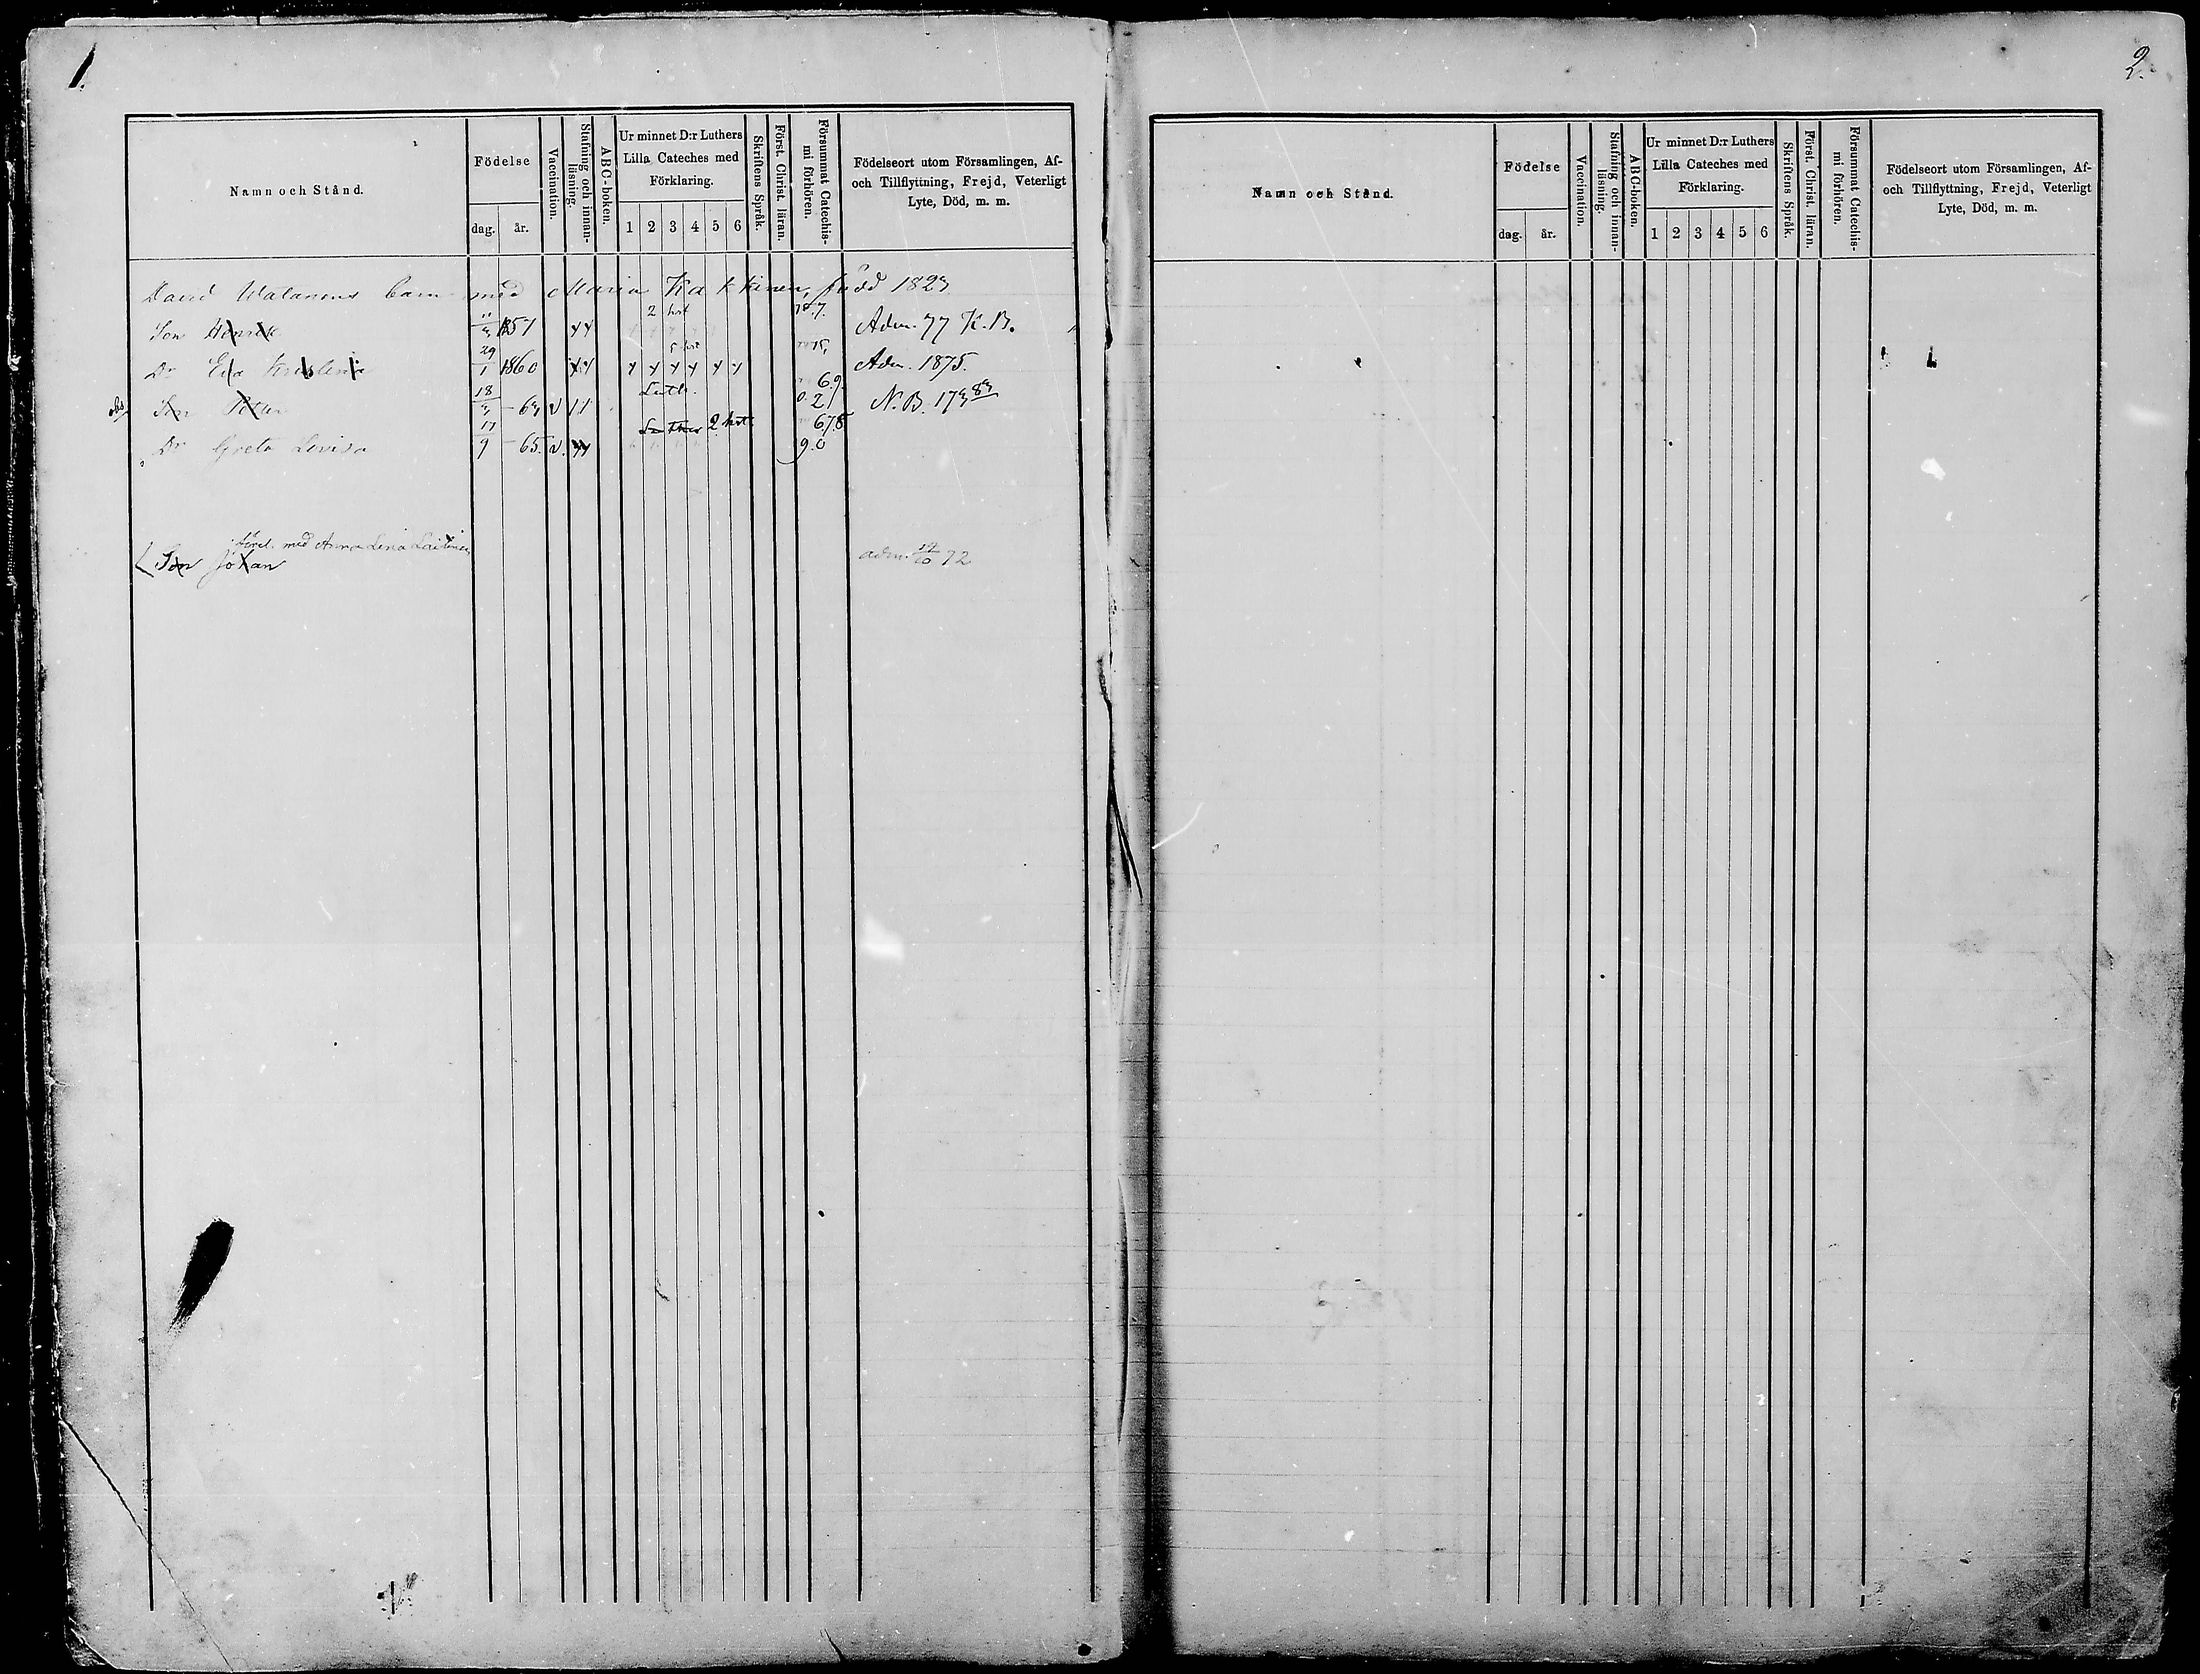 1.
Namn och Stånd.
Födelse
dag.
år.
Vaccination.
Stafning och innan-
läsning.
ABC-boken.
Ur minnet D:r Luthers
Lilla Cateches med
Förklaring.
1 2 3 4 5 6
Skriftens Språk.
Först. Christ. läran.
Försummat Catechis-
mi förhören.
Födelseort utom Församlingen, Af-
och Tillflyttning, Frejd, Veterligt
Lyte, Död, m. m.
David Watanens barn med Maria Kakkinen, född 1823
2 hst
Son Henrik 11/3 1857 Adm. 77 K.B.
Dr Eva Kristina 29/1 1860 Adm. 1875.
obs Son Petter 18/3 -63 v Luth. N.B. 173 83
Dr Greta Lovisa 17/9 -65. v. Luther 2 hst. 678
9.0
förel. med Anna Lena Laitinen
Son Johan adm. 72
2.
Namn och Stånd.
Födelse
dag.
år.
Vaccination.
Stafning och innan-
läsning.
ABC-boken.
Ur minnet D:r Luthers
Lilla Cateches med
Förklaring.
1 2 3 4 5 6
Skriftens Språk.
Först. Christ. läran.
Försummat Catechis-
mi förhören.
Födelseort utom Församlingen, Af-
och Tillflyttning, Frejd, Veterligt
Lyte, Död, m. m.